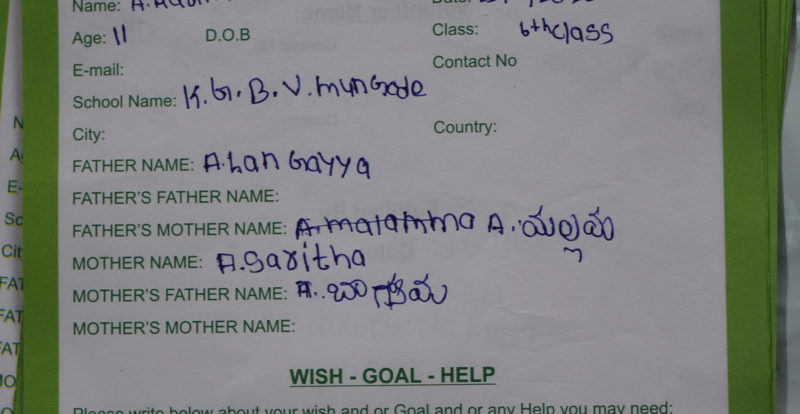 Name: A.
Age: 11 D.O.B Class: 6th class
E-mail: Contact No
School Name: K.G.B.V. mungode
City: Country:
FATHER NAME: A.Lan Gayya
FATHER'S FATHER NAME:
FATHER'S MOTHER NAME: A.malamma A.
MOTHER NAME: A.Saritha
MOTHER'S FATHER NAME: A.
MOTHER'S MOTHER NAME:
WISH - GOAL - HELP
Please write below about your wish and or Goal and or any Help you may need: